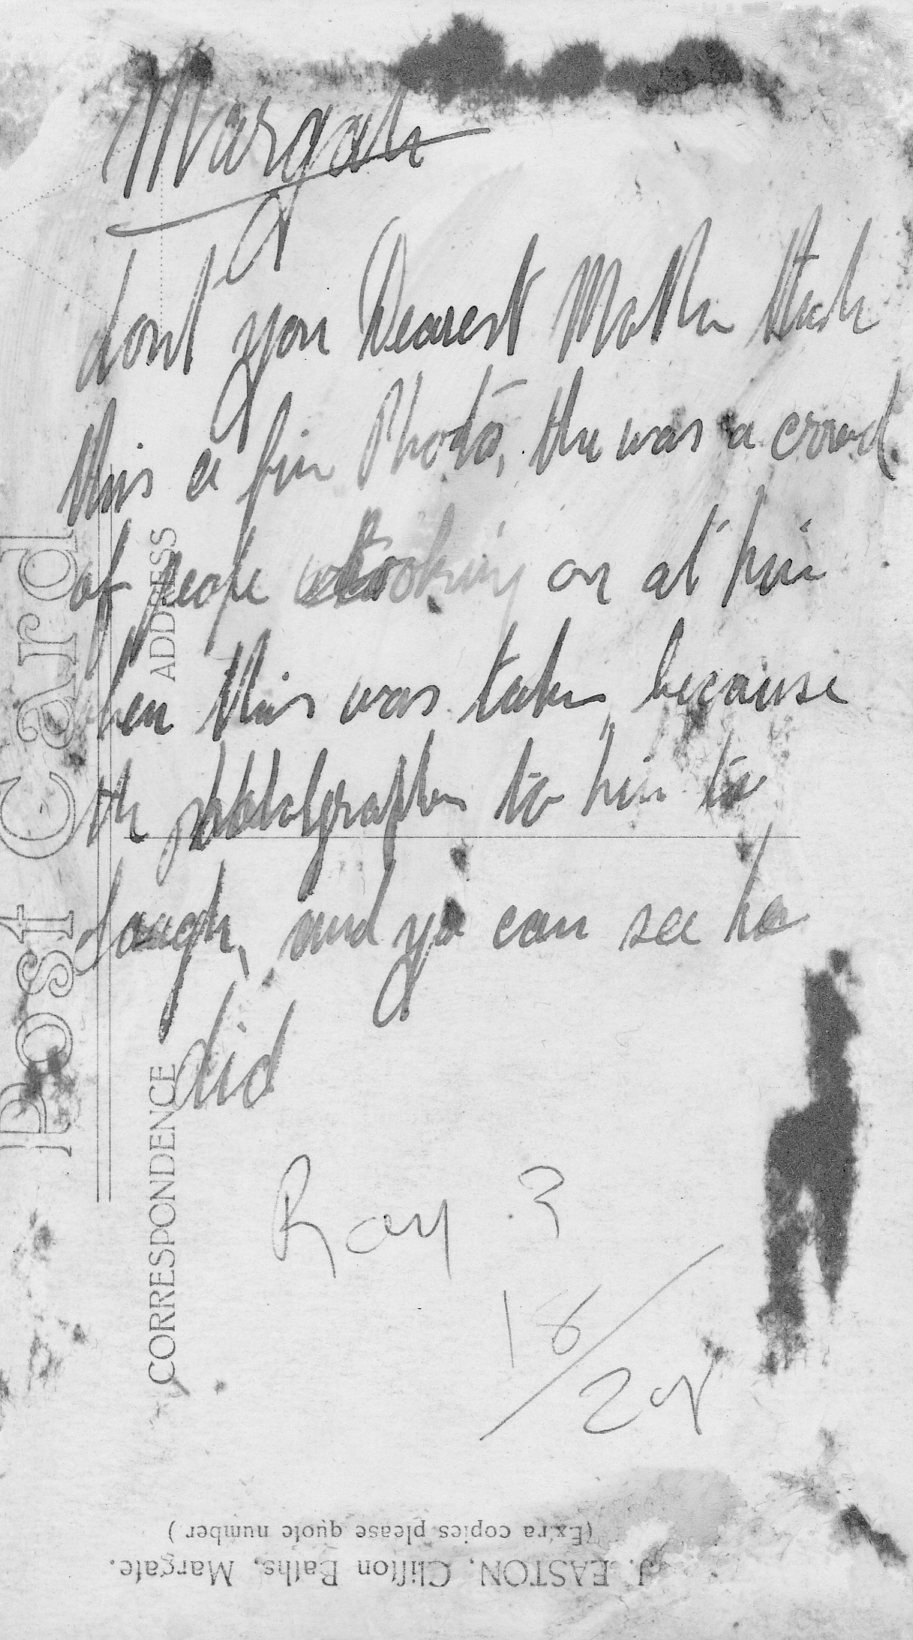 Margate
dont you Dearest Mother think
this a fine Photo, the was a crowd
of people looking on at him
when this was taken because
the photographer to him to
laugh, and yo can see he
did
Ray 3
18/
Post Card
ADDRESS
CORRESPONDENCE
(Extra copies please quote number)
J. EASTON, Clifton Baths, Margate.